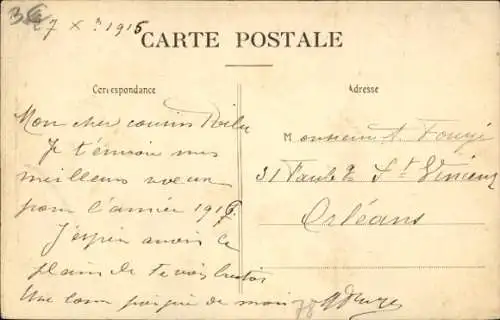 27 Xbre 1916
CARTE POSTALE
Correspondance
Adresse
Mon cher cousin Poilu
Je t'envoie mes
meilleurs vœux
pour l'année 1917.
J'espère avoir le
plaisir de te voir
Une de moi
Monsieur A. Fougé
31 Faub. St Vincent
Orléans